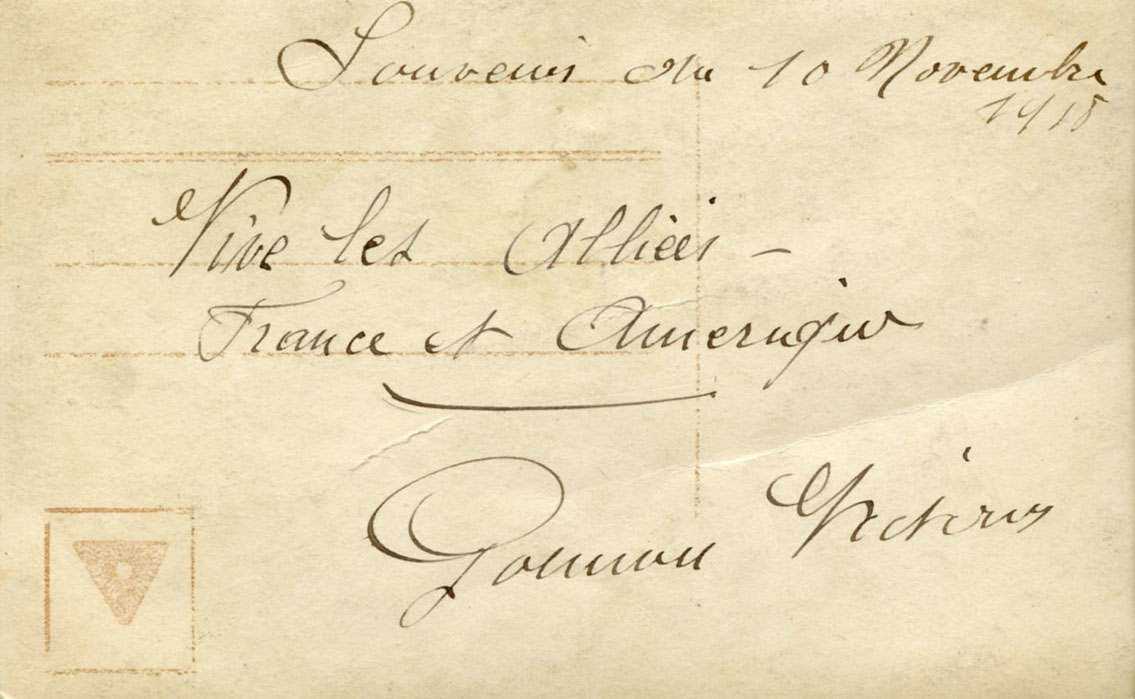 Souvenir du 10 Novembre
1918
Vive les Alliés –
France et Amerique